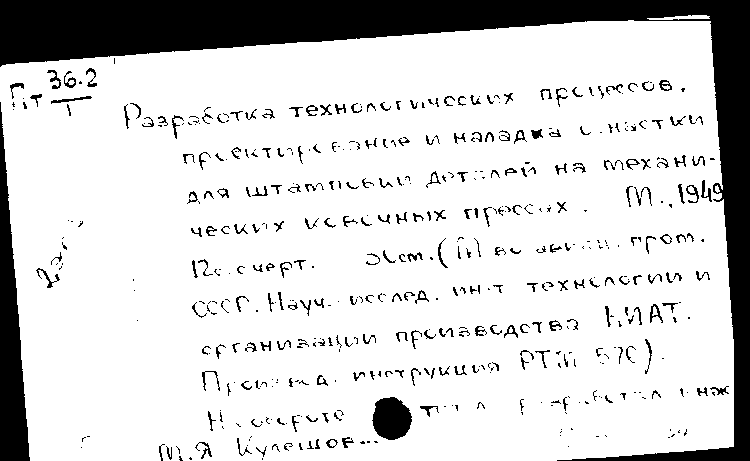 Пт 36.2
Т
Разработка технологических процессов,
проектирование и наладка оснастки
для штамповки деталей на механи-
ческих ковочных прессах. М., 1949
12с. с черт. (М-во авиац. пром.
СССР. Науч.-исслед. ин-т технологии и
организации производства НИАТ.
Произвед. инструкция РТМ 570).
На обороте разработал инж
М.Я Кулешов...